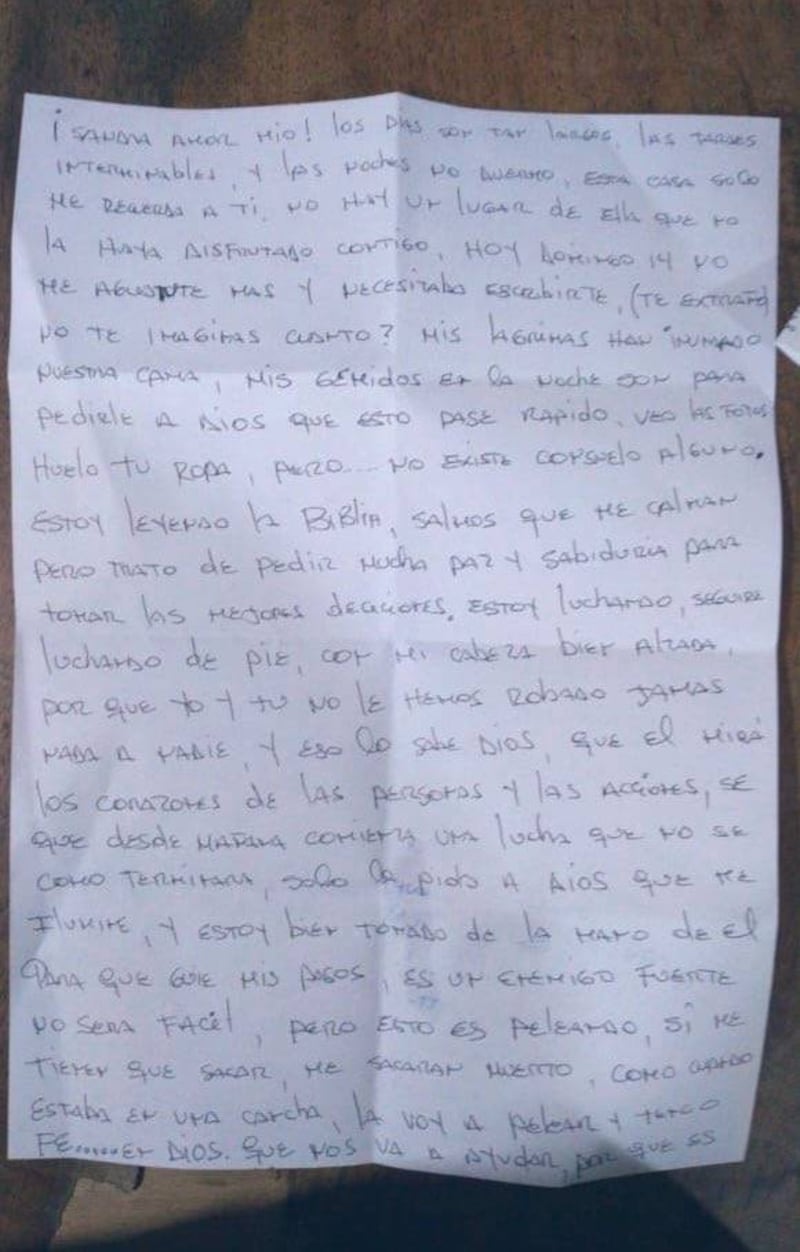 ¡SANDRA AMOR MIO! los DIAS SON TAN lARGOS, lAS TARDES
INTERMINAbles, Y lAS Noches NO DUERMO, ESTA CASA SOLO
ME RECUERDA A Ti, NO HAY UN lUGAR de Ella QUE NO
lA HAYA DISFRUTADO CONTIGO, HOY DOMINGO 14 NO
ME AGUANTE MAS Y NECESITABA ESCRIBIRTE, (TE EXTRAÑO)
NO TE IMAGINAS CUANTO? MIS lAGRIMAS HAN INUNDADO
NUESTRA CAMA, MIS GEMIDOS EN la Noche SON PARA
Pedirle A DIOS QUE ESTO PASE RAPIDO, VEO lAS FOTOS
Huelo TU ROPA, PERO.... NO EXISTE CONSUELO AlGUNO.
ESTOY lEYENDO lA BIBLIA, SALMOS QUE ME CALMAN
PERO TRATO de Pedir Mucha PAZ Y SAbiduria PARA
TOMAR lAS MEJORES decisiones. ESTOY luchando, SEGUIRE
luchando de PIE, CON MI CABEZA biEN AlZADA,
POR QUE YO Y TU NO lE HEMOS ROBADO JAMAS
NADA A NADIE, Y ESO lo SAbE DIOS, QUE El MIRA
los CORAZONES de LAS PERSONAS Y lAS ACCIONES, SE
QUE desde MAÑANA COMIENZA UNA lucha QUE NO SE
COMO TERMINARA, SOLO le pido A DIOS QUE ME
IlUMINE, Y ESTOY biEN TOMADO de lA MANO de El
PARA QUE GUIE MIS PASOS, ES UN ENEMIGO FUERTE
NO SERA FACil, PERO ESTO ES PELEANDO, SI ME
TIENEN QUE SACAR, ME SACARAN MUERTO, COMO CUANDO
ESTABA EN UNA CANCHA, lA VOY A PElEAR Y TENGO
FE......EN DIOS. QUE NOS VA A AYUDAR, POR QUE ES